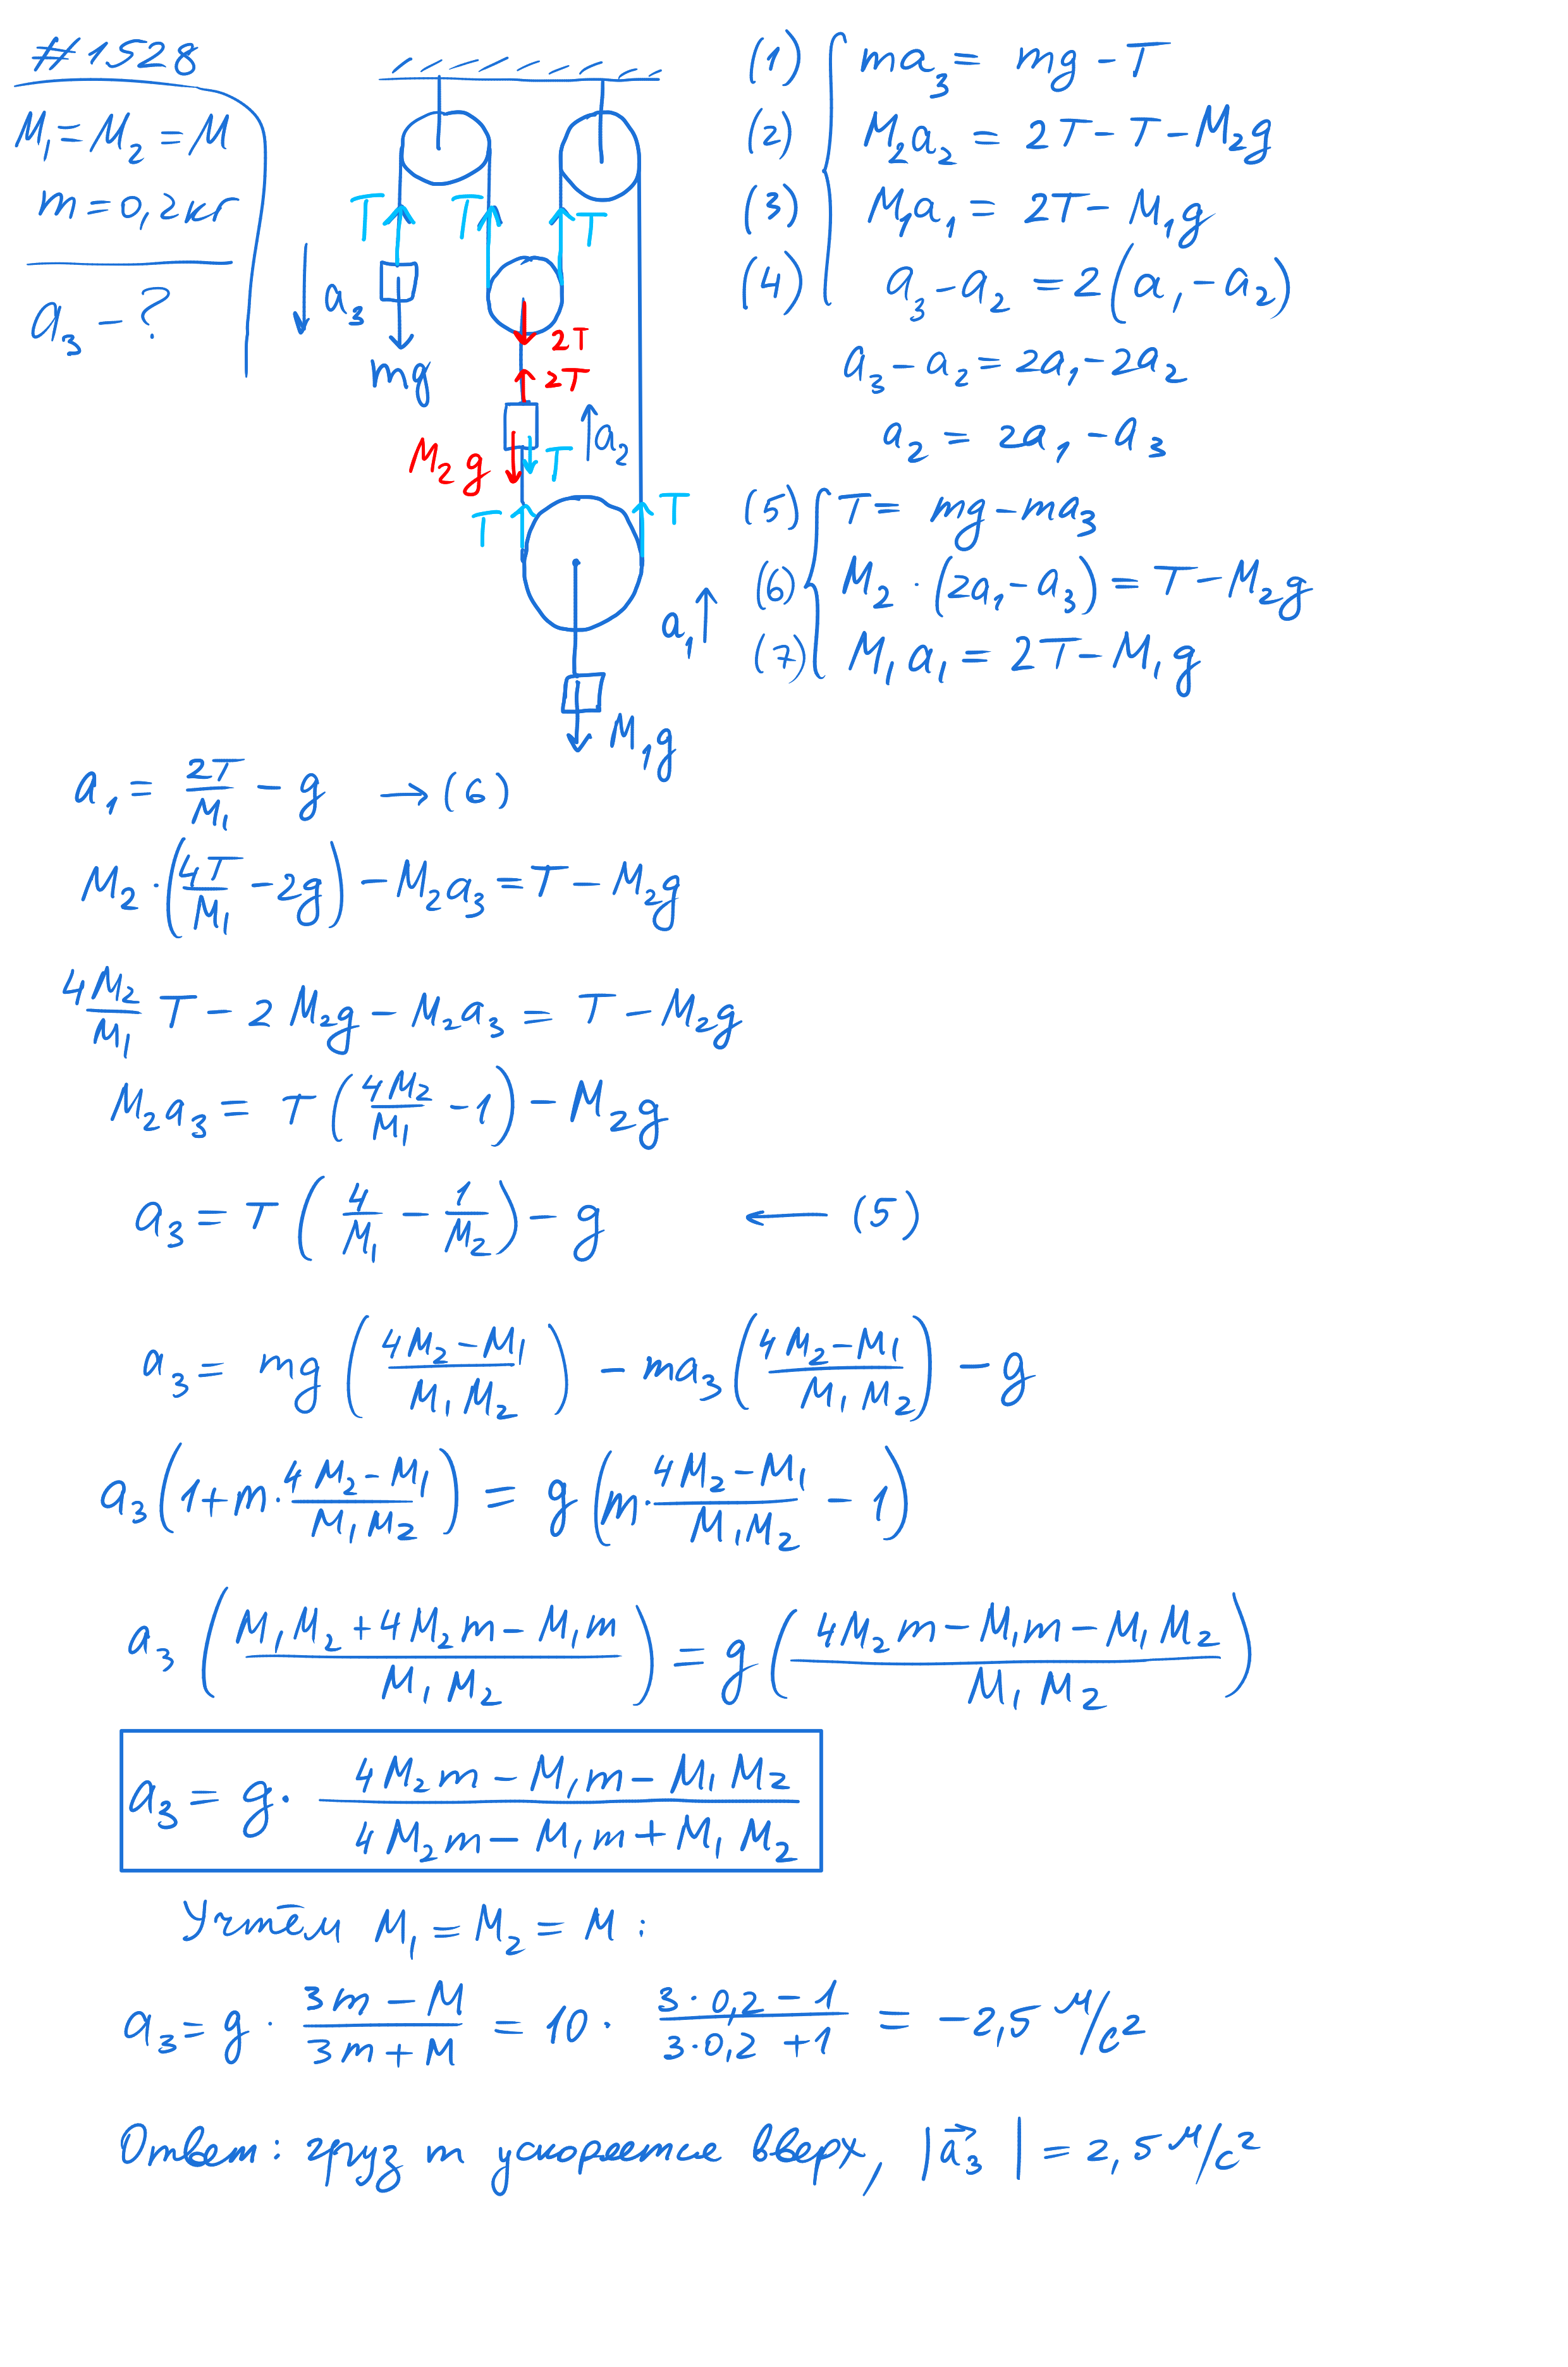 #1528
M₁=M₂=M
m=0,2кг
a₃-?
T
T
T
a₃
mg
2T
2T
M₂g
T
a₂
T
T
a₁
M₁g
(1) ma₃ = mg-T
(2) M₂a₂ = 2T-T-M₂g
(3) M₁a₁ = 2T-M₁g
(4) a₃-a₂ = 2(a₁-a₂)
a₃-a₂ = 2a₁-2a₂
a₂ = 2a₁-a₃
(5) T= mg-ma₃
(6) M₂·(2a₁-a₃) = T-M₂g
(7) M₁a₁ = 2T-M₁g
a₁ = 2T/M₁ - g → (6)
M₂·(4T/M₁ -2g) -M₂a₃=T-M₂g
4M₂/M₁ T - 2M₂g - M₂a₃ = T-M₂g
M₂a₃ = T(4M₂/M₁ -1) - M₂g
a₃ = T(4/M₁ - 1/M₂) - g ← (5)
a₃ = mg((4M₂-M₁)/(M₁M₂)) - ma₃((4M₂-M₁)/(M₁M₂)) - g
a₃(1+m·(4M₂-M₁)/(M₁M₂)) = g(m·(4M₂-M₁)/(M₁M₂) - 1)
a₃((M₁M₂+4M₂m-M₁m)/(M₁M₂)) = g((4M₂m-M₁m-M₁M₂)/(M₁M₂))
a₃ = g· (4M₂m-M₁m-M₁M₂)/(4M₂m-M₁m+M₁M₂)
Учтём M₁=M₂=M:
a₃= g· (3m-M)/(3m+M) = 10· (3·0,2-1)/(3·0,2+1) = -2,5 м/с²
Ответ: груз m ускоряется вверх, |a⃗₃| = 2,5 м/с²